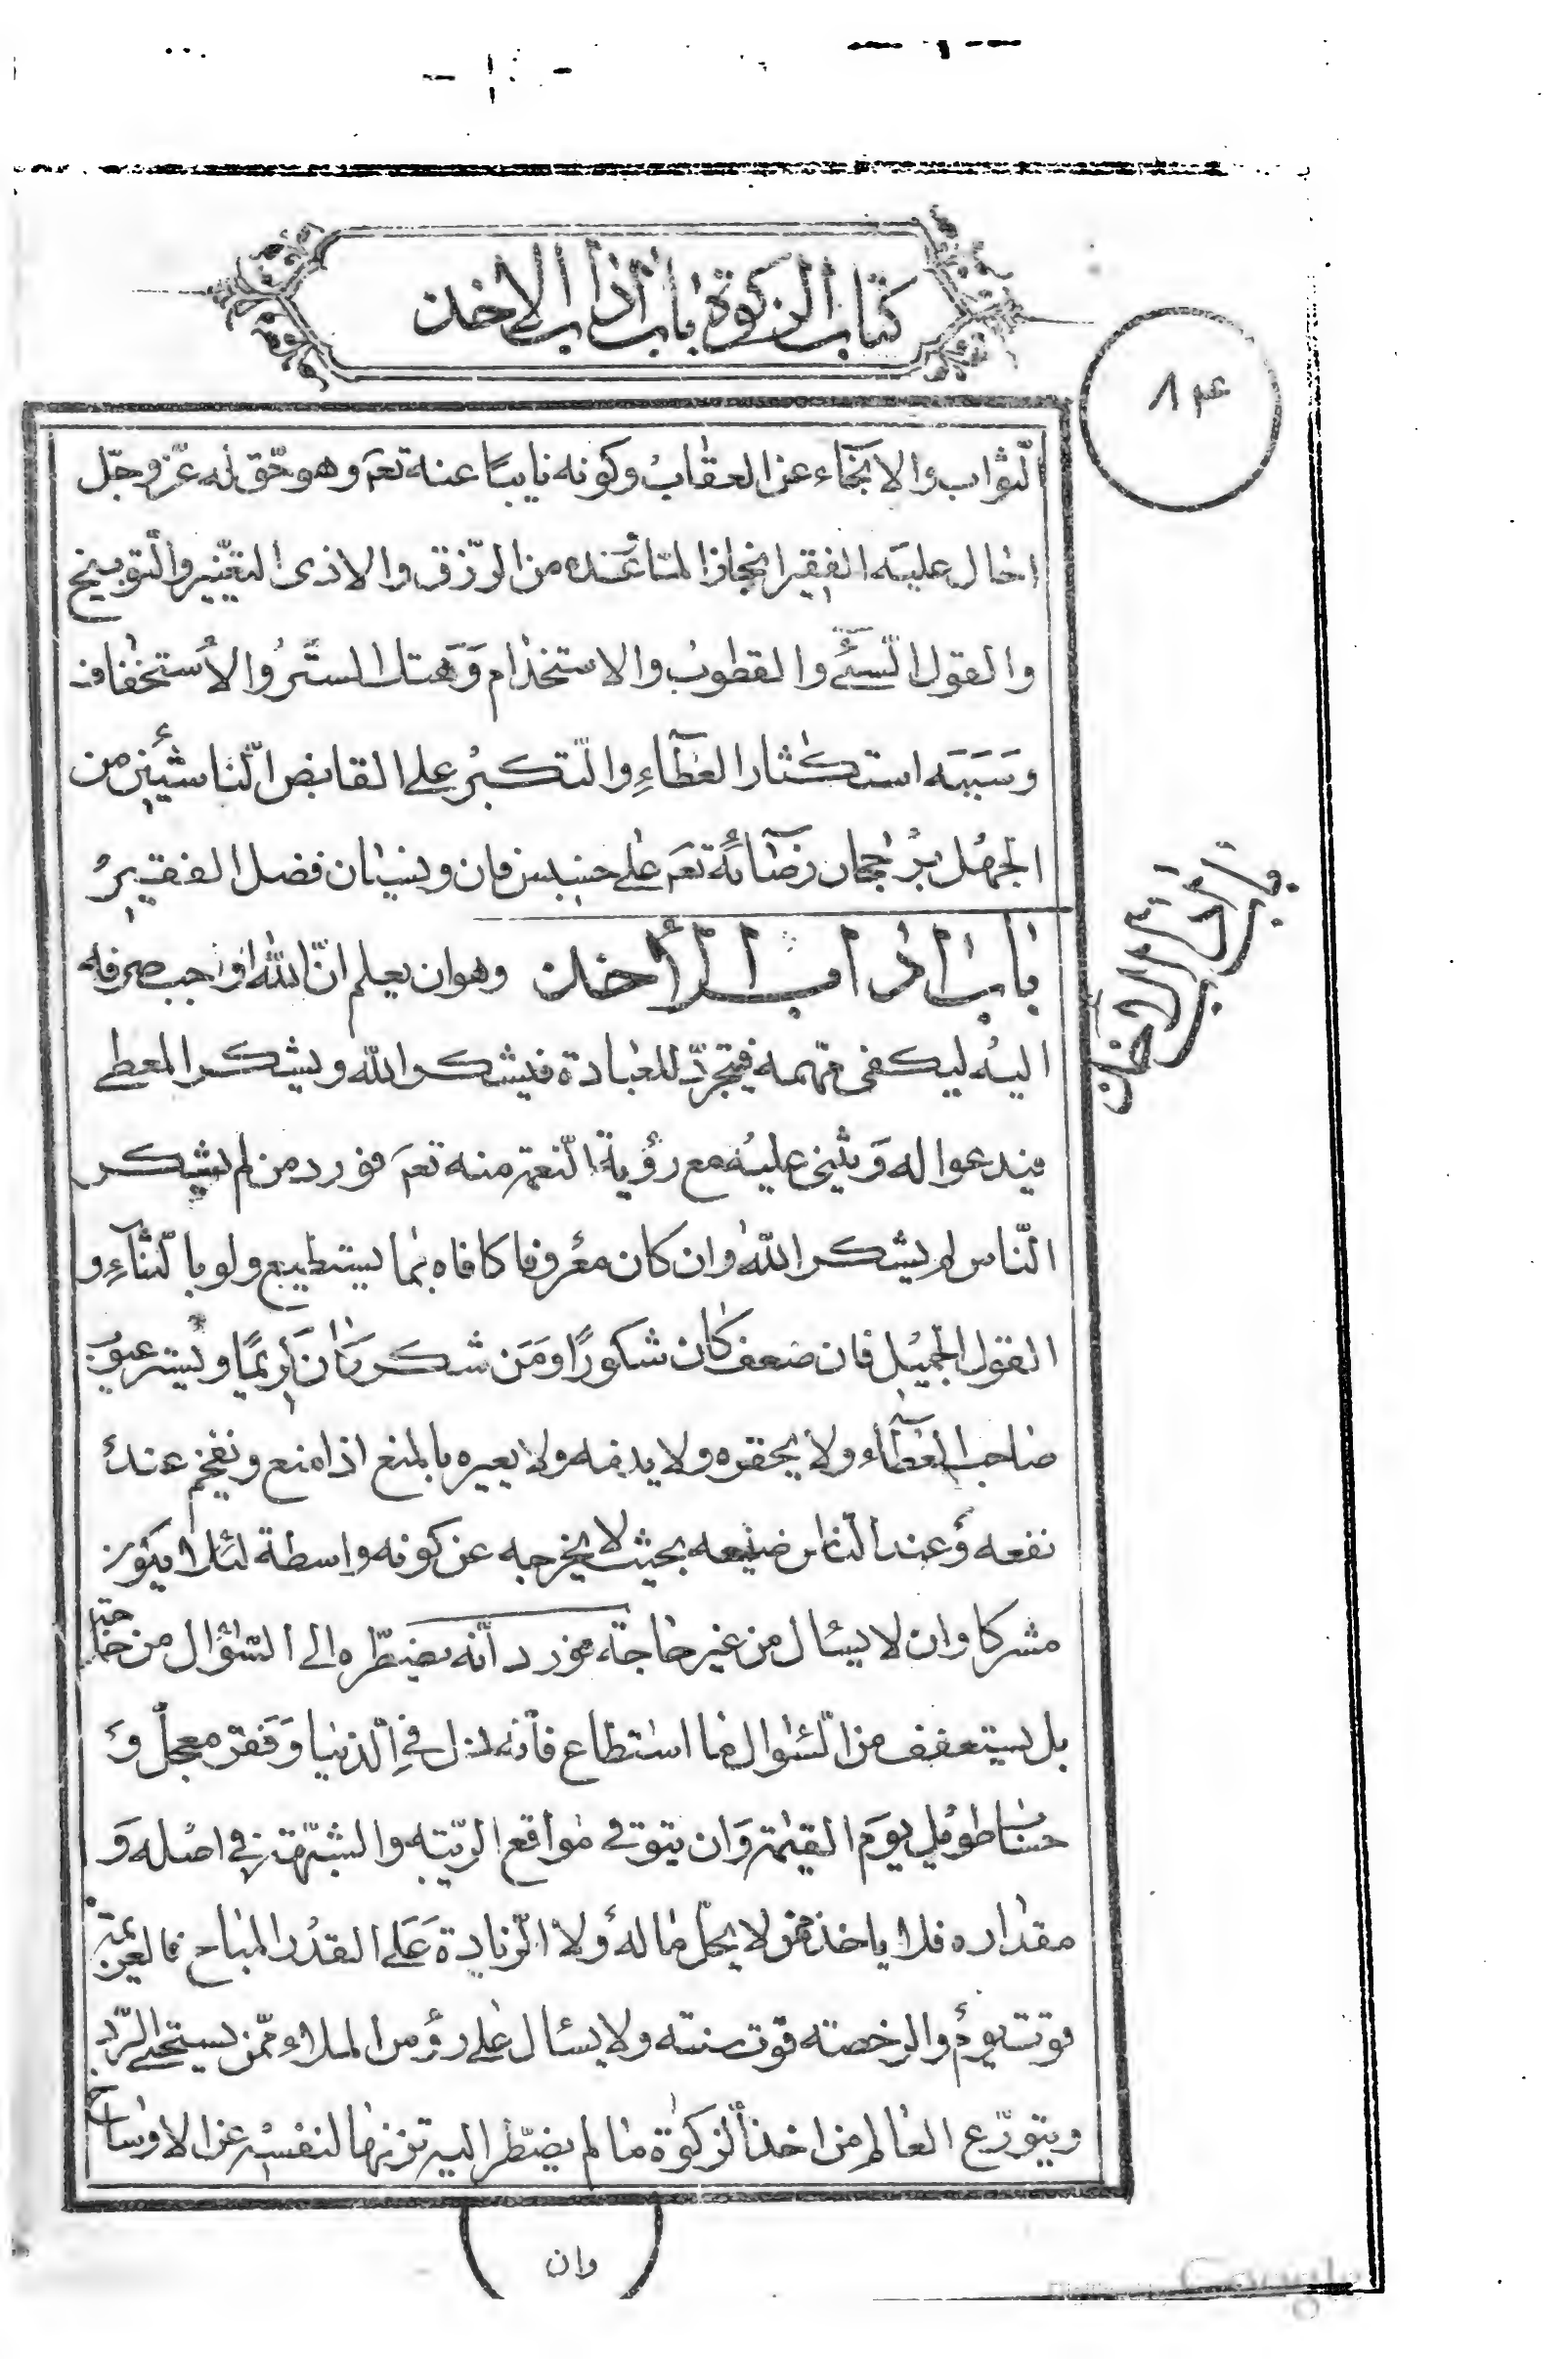 كتاب الزكوة باب آداب الاخذ
٨٤
الثواب والانجاء عن العقاب وكونه نايبا عنه تعم وهو حق له عز وجل
احال عليه الفقير انجازا لما عنده من الرزق والاذى التعيير والتوبيخ
والقول السيئ والقطوب والاستخدام وهتك الستر والاستخفاف
وسببه استكثار العطاء والتكبر على القابض الناشئين من
الجهل برجحان رضائه تعم على خسيس فان ونسيان فضل الفقير
باب اداب الأخذ وهو ان يعلم ان الله اوجب صرفه
اليه ليكفى مهمه فيتجرد للعبادة فيشكر الله ويشكر المعطى
فيدعوا له ويثنى عليه مع رؤية النعمة منه تعم فورد من لم يشكر
الناس لم يشكر الله وان كان معروفا كافاه بما يستطيع ولو بالثناء و
القول الجميل فان ضعف كان شكورا ومن شكر كان كريما ويستر عيوب
صاحب العطاء ولا يحقره ولا يذمه ولا يعيره بالمنع اذا منع ونفخم عنده
نفعه وعند الناس صنيعه بحيث لا يخرجه عن كونه واسطة لئلا يكون
مشركا وان لا يسئال من غير حاجة فورد أنه يضطره الى السؤال من حاجة
بل يستعفف من السئوال ما استطاع فأنه ذل في الدنيا وفقر معجل و
حساب طويل يوم القيمة وان يتوقى مواقع الريبه والشبهة في اصله و
مقداره فلا ياخذ ممن لا يحل ماله ولا الزيادة على القدر المباح فالعزيمة
قوت يوم والرخصته قوت سنته ولا يسئال على رؤس الملاء ممن يستحي الرد
ويتورع العالم من اخذ الزكوة ما لم يضطر اليه تنزيها لنفسه عن الاوساخ
باب آداب الاخذ
وان
Google